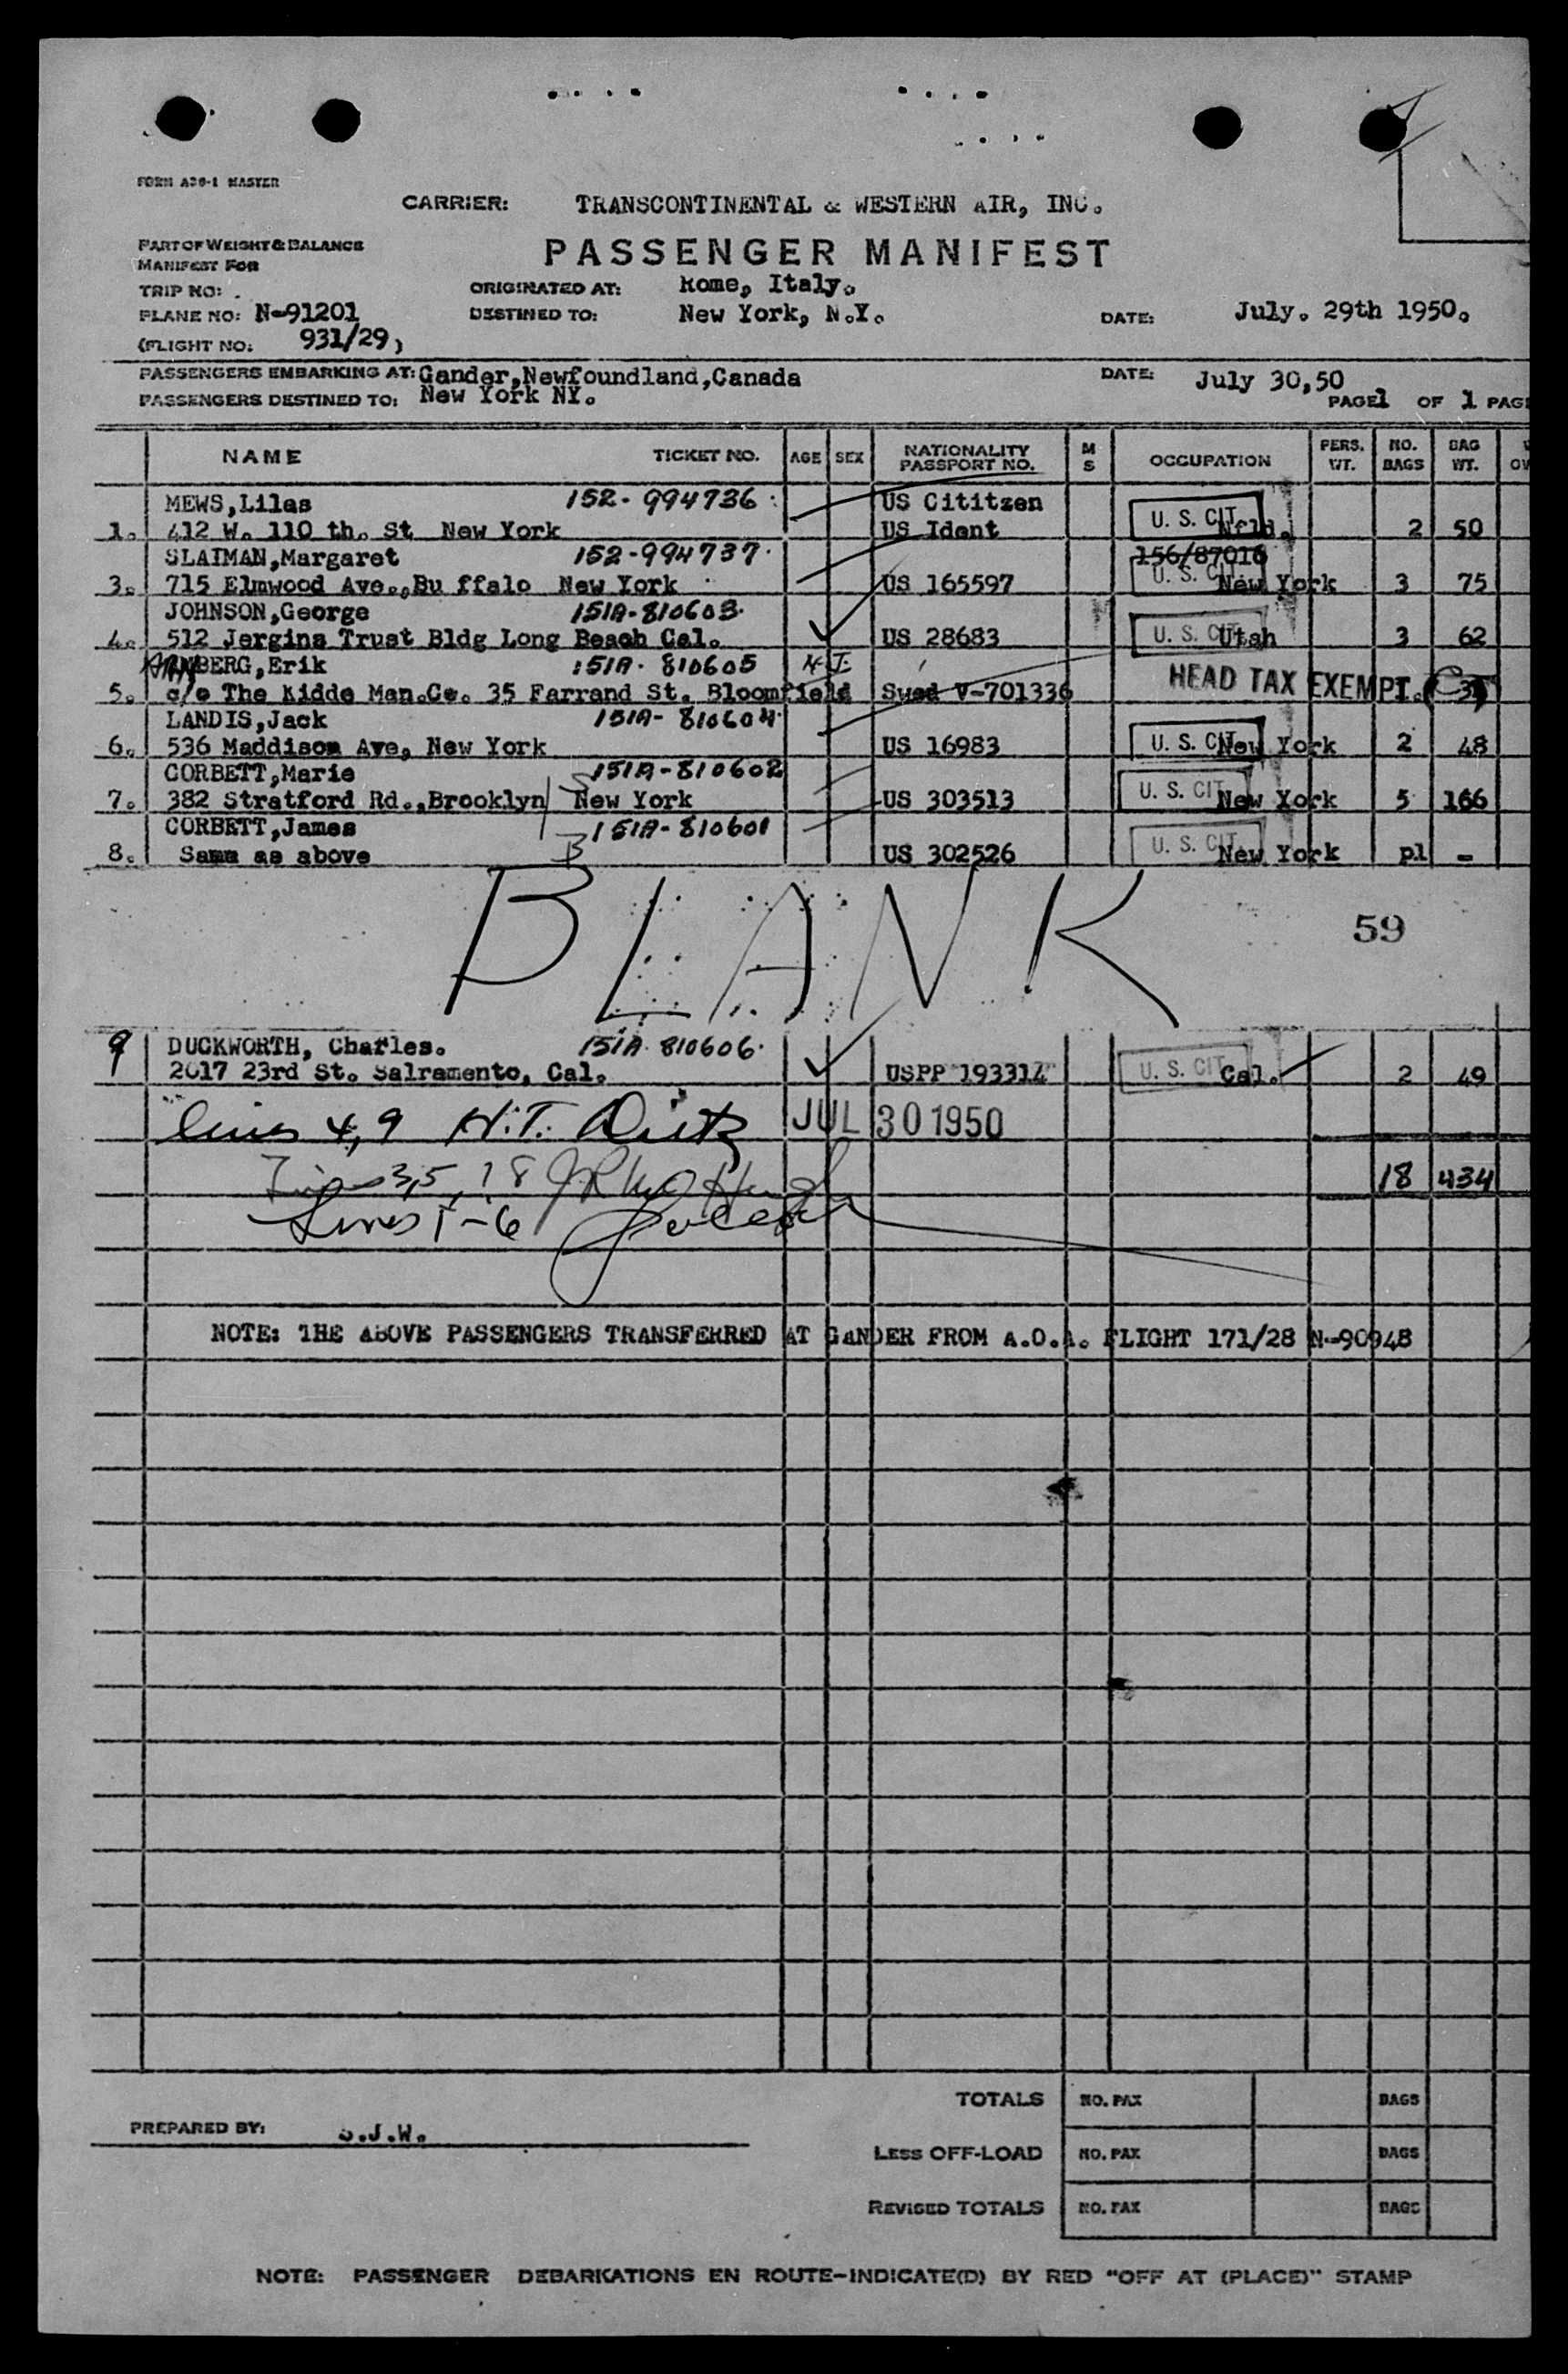 FORM A36-1 MASTER
CARRIER: TRANSCONTINENTAL & WESTERN AIR, INC.
PART OF WEIGHT & BALANCE
MANIFEST FOR
PASSENGER MANIFEST
TRIP NO: .
ORIGINATED AT: Rome, Italy.
PLANE NO: N-91201
DESTINED TO: New York, N.Y.
DATE: July. 29th 1950.
(FLIGHT NO: 931/29)
PASSENGERS EMBARKING AT: Gander,Newfoundland,Canada DATE: July 30,50
PASSENGERS DESTINED TO: New York NY. PAGE 1 OF 1 PAGE
NAME TICKET NO. AGE SEX NATIONALITY PASSPORT NO. M S OCCUPATION PERS. WT. NO. BAGS BAG WT.
MEWS,Lilas 152-994736 US Cititzen
1. 412 W. 110 th. St New York US Ident U. S. CIT. Nfld. 2 50
SLAIMAN,Margaret 152-994737 156/87016
3. 715 Elmwood Ave.,Bu ffalo New York US 165597 U. S. CIT. New York 3 75
JOHNSON,George 151A-810603
4. 512 Jergins Trust Bldg Long Beach Cal. US 28683 U. S. CIT. Utah 3 62
BERG,Erik 151A-810605 N.J.
5. c/o The Kidde Man.Co. 35 Farrand St. Bloomfield Swed V-701336 HEAD TAX EXEMPT.
LANDIS,Jack 151A-810604
6. 536 Maddison Ave, New York US 16983 U. S. CIT. New York 2 48
CORBETT,Marie 151A-810602
7. 382 Stratford Rd.,Brooklyn New York US 303513 U. S. CIT. New York 5 166
CORBETT,James 151A-810601
8. Same as above US 302526 U. S. CIT. New York pl -
BLANK
59
9 DUCKWORTH, Charles. 151A 810606
2017 23rd St. Salramento, Cal. USPP 193314 U. S. CIT. Cal. 2 49
lines 4,9 H.T. JUL 30 1950
18 434
Lines 1-6
NOTE: THE ABOVE PASSENGERS TRANSFERRED AT GANDER FROM A.O.A. FLIGHT 171/28 N-90948
TOTALS NO. PAX BAGS
PREPARED BY: S.J.W.
LESS OFF-LOAD NO. PAX BAGS
REVISED TOTALS NO. PAX BAGS
NOTE: PASSENGER DEBARKATIONS EN ROUTE-INDICATE(D) BY RED "OFF AT (PLACE)" STAMP